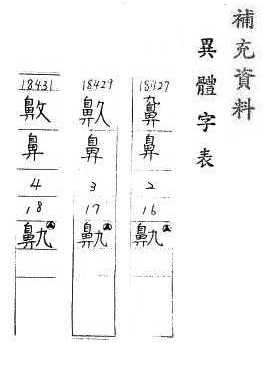 補充資料
異體字表
18427
鼻
2
16
鼽
18429
鼻
3
17
鼽
18431
鼻
4
18
鼽